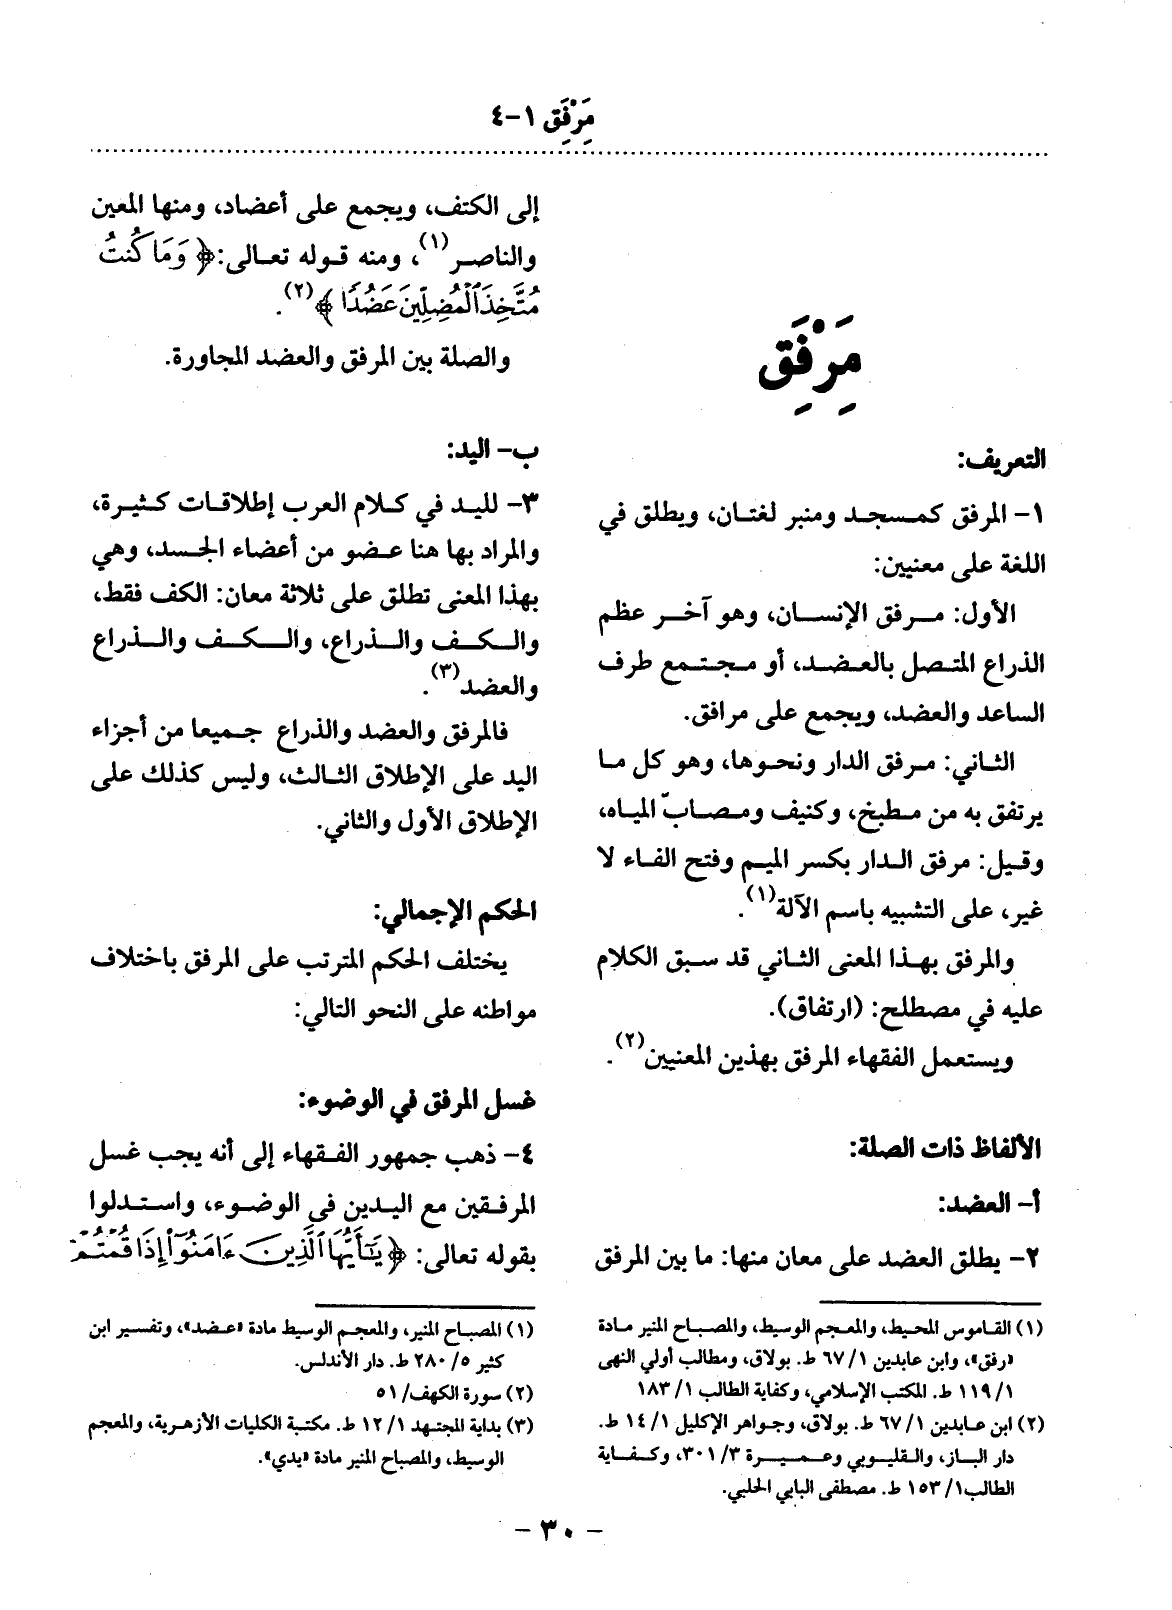 مَرْفِق ١-٤
مَِرْفَِق
التعريف:
١- المرفق كمسجد ومنبر لغتان، ويطلق في
اللغة على معنيين:
الأول: مرفق الإنسان، وهو آخر عظم
الذراع المتصل بالعضد، أو مجتمع طرف
الساعد والعضد، ويجمع على مرافق.
الثاني: مرفق الدار ونحوها، وهو كل ما
يرتفق به من مطبخ، وكنيف ومصابّ المياه،
وقيل: مرفق الدار بكسر الميم وفتح الفاء لا
غير، على التشبيه باسم الآلة(١).
والمرفق بهذا المعنى الثاني قد سبق الكلام
عليه في مصطلح: (ارتفاق).
ويستعمل الفقهاء المرفق بهذين المعنيين(٢).
الألفاظ ذات الصلة:
أ- العضد:
٢- يطلق العضد على معان منها: ما بين المرفق
(١) القاموس المحيط، والمعجم الوسيط، والمصباح المنير مادة
«رفق»، وابن عابدين ١/ ٦٧ ط. بولاق، ومطالب أولي النهى
١/ ١١٩ ط. المكتب الإسلامي، وكفاية الطالب ١/ ١٨٣
(٢) ابن عابدين ١/ ٦٧ ط. بولاق، وجواهر الإكليل ١/ ١٤ ط.
دار الباز، والقليوبي وعميرة ٣/ ٣٠١، وكفاية
الطالب١/ ١٥٣ ط. مصطفى البابي الحلبي.
إلى الكتف، ويجمع على أعضاد، ومنها المعين
والناصر(١)، ومنه قوله تعالى: ﴿ وَمَا كُنتُ
مُتَّخِذَ ٱلْمُضِلِّينَ عَضُدًا ﴾(٢).
والصلة بين المرفق والعضد المجاورة.
ب- اليد:
٣- لليد في كلام العرب إطلاقات كثيرة،
والمراد بها هنا عضو من أعضاء الجسد، وهي
بهذا المعنى تطلق على ثلاثة معان: الكف فقط،
والكف والذراع، والكف والذراع
والعضد(٣).
فالمرفق والعضد والذراع جميعا من أجزاء
اليد على الإطلاق الثالث، وليس كذلك على
الإطلاق الأول والثاني.
الحكم الإجمالي:
يختلف الحكم المترتب على المرفق باختلاف
مواطنه على النحو التالي:
غسل المرفق في الوضوء:
٤- ذهب جمهور الفقهاء إلى أنه يجب غسل
المرفقين مع اليدين في الوضوء، واستدلوا
بقوله تعالى: ﴿ يَـٰٓأَيُّهَا ٱلَّذِينَ ءَامَنُوٓا۟ إِذَا قُمْتُمْ
(١) المصباح المنير، والمعجم الوسيط مادة «عضد»، وتفسير ابن
كثير ٥/ ٢٨٠ ط. دار الأندلس.
(٢) سورة الكهف/ ٥١
(٣) بداية المجتهد ١/ ١٢ ط. مكتبة الكليات الأزهرية، والمعجم
الوسيط، والمصباح المنير مادة «يدي».
- ٣٠ -